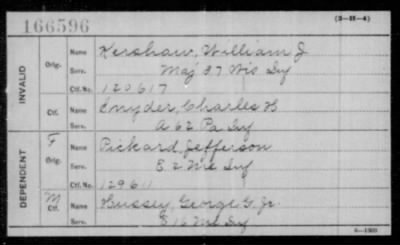 166596
(3-H-4)
INVALID
Orig. Name Kershaw, William J
Serv. Maj 37 Wis Inf
Ctf. No. 120617
Ctf. Name Snyder, Charles H
Serv. A 62 Pa Inf
DEPENDENT
F Orig. Name Pickard, Jefferson
Serv. E 2 Me Inf
Ctf. No. 129611
M Ctf. Name Hussey, George G. Jr.
Serv. 16 Me Inf